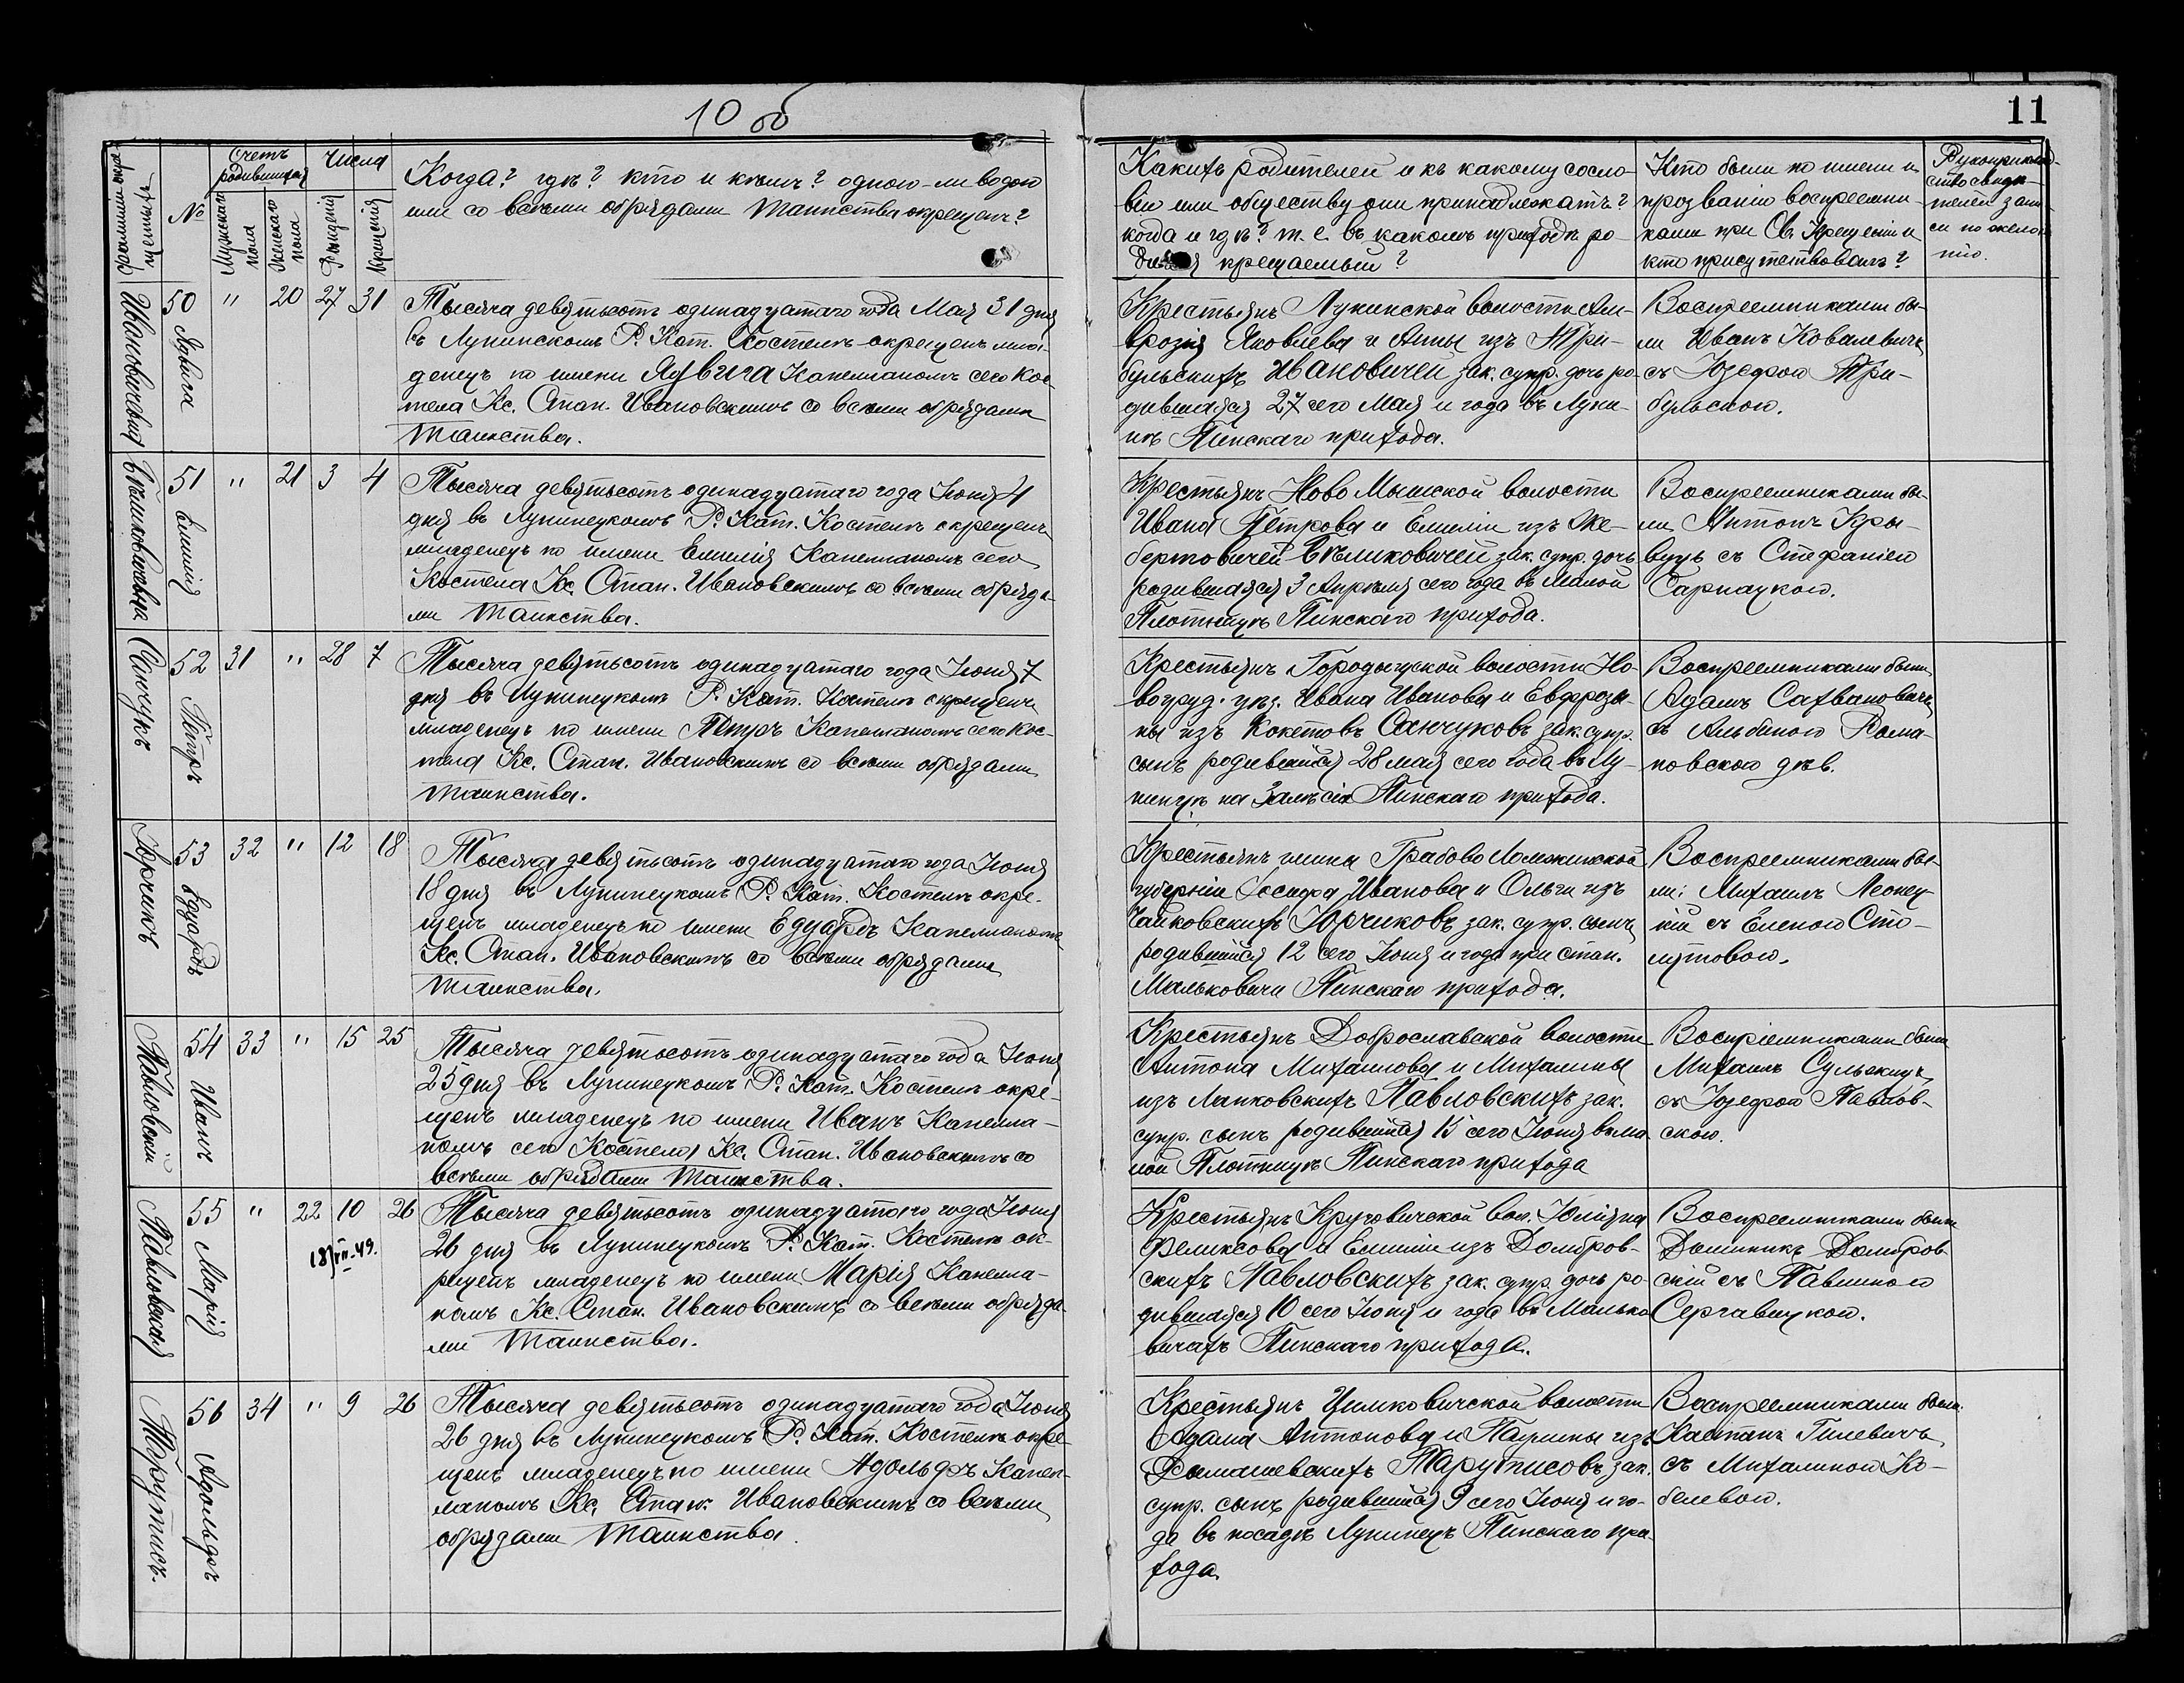 10 об
11
Фамиліи окре-
щенныхъ
№
Счетъ
родившихся
Мужскаго
пола
Женскаго
пола
Числа
Рожденія
Крещенія
Когда? гдѣ? кто и кѣмъ? одною-ли водою
или со всѣми обрядами Таинства окрещенъ?
Какихъ родителей и къ какому сосло-
вію или обществу они принадлежатъ?
когда и гдѣ? т. е. въ какомъ приходѣ ро-
крещаемый?
Кто были по имени и
прозванію воспреемни-
ками при Св. Крещеніи и
кто присутствовалъ?
Рукоприклад-
ство свидѣ-
телей
по жела-
нію.
Ивановичевна
50 Ядвига
" 20 27 31
Тысяча девятьсотъ одинадцатаго года Мая 31 дня
въ Лунинскомъ Р. Кат. Костелѣ окрещенъ мла-
денецъ по имени Ядвига Капелланомъ сего Кос-
тела Кс. Стан. Ивановскимъ со всѣми обрядами
Таинства.
Крестьянъ Лунинской волости Ам-
врозія Яковлева и Анны изъ Три-
бульскихъ Ивановичей зак. супр. дочь ро-
дившаяся 27 сего Мая и года въ Луни-
нѣ Пинскаго прихода.
Воспреемниками бы-
ли Иванъ Ковалевичъ
съ Юзефою Три-
бульскою.
51 Емилія
" 21 3 4
Тысяча девятьсотъ одинадцатаго года Іюня 4
дня въ Лунинецкомъ Р. Кат. Костелѣ окрещенъ
младенецъ по имени Емилія Капелланомъ сего
Костела Кс. Стан. Ивановскимъ со всѣми обряда-
ми Таинства.
Крестьянъ Ново Мышской волости
Ивана Петрова и Емиліи изъ Же-
бертовичей Вѣликовичей зак. супр. дочь
родившаяся 3 Апрѣля сего года въ Малой
Плотницѣ Пинскаго прихода.
Воспреемниками бы-
ли Антонъ Кры-
вуцъ съ Стефаніею
Сарнацкою.
Санчукъ
52 Петръ
31 " 28 7
Тысяча девятьсотъ одинадцатаго года Іюня 7
дня въ Лунинецкомъ Р. Кат. Костелѣ окрещенъ
младенецъ по имени Петръ Капелланомъ сего Кос-
тела Кс. Стан. Ивановскимъ со всѣми обрядами
Таинства.
Крестьянъ Городыщской волости Но-
вогруд. уѣз. Ивана Иванова и Евфрози-
ны изъ Кокетовъ Санчуковъ зак. супр.
сынъ родившійся 28 мая сего года въ Лу-
нинцѣ на Залѣсіи Пинскаго прихода.
Воспреемниками были
Адамъ Сахвановичъ
съ Альбиною Рома-
новскою дѣв.
Юрчикъ
53 Едуардъ
32 " 12 18
Тысяча девятьсотъ одинадцатаго года Іюня
18 дня въ Лунинецкомъ Р. Кат. Костелѣ окре-
щенъ младенецъ по имени Едуардъ Капелланомъ
Кс. Стан. Ивановскимъ со всѣми обрядами
Таинства.
Крестьянъ гмины Грабово Ломжинской
губерніи Іосифа Иванова и Ольги изъ
Чайковскихъ Юрчиковъ зак. супр. сынъ
родившійся 12 сего Іюня и года при стан.
Мальковичи Пинскаго прихода.
Воспреемниками бы-
ли: Михаилъ Леонец-
кій съ Еленою Сто-
лутовою.
Павловскій
54 Иванъ
33 " 15 25
Тысяча девятьсотъ одинадцатаго года Іюня
25 дня въ Лунинецкомъ Р. Кат. Костелѣ окре-
щенъ младенецъ по имени Иванъ Капелла-
номъ сего Костела Кс. Стан. Ивановскимъ со
всѣми обрядами Таинства.
Крестьянъ Доброславской волости
Антона Михаилова и Михалины
изъ Лапковскихъ Павловскихъ зак.
супр. сынъ родившійся 15 сего Іюня въ Ма-
лой Плотницѣ Пинскаго прихода
Воспріемниками были
Михаилъ Сульжицъ
съ Юзефою Павлов-
скою.
Павловская
55 Марія
" 22 10 26
18/VII-49.
Тысяча девятьсотъ одинадцатаго года Іюня
26 дня въ Лунинецкомъ Р. Кат. Костелѣ ок-
рещенъ младенецъ по имени Марія Капелла-
номъ Кс. Стан. Ивановскимъ со всѣми обряда-
ми Таинства.
Крестьянъ Круговичской вол. Юліяна
Феликсова и Емиліи изъ Домбров-
скихъ Павловскихъ зак. супр. дочь ро-
дившаяся 10 сего Іюня и года въ Малько-
вичахъ Пинскаго прихода.
Воспреемниками были
Доминикъ Домбров-
скій съ Павлиною
Сергавицкою.
Тарутисъ.
56 Адольфъ
34 " 9 26
Тысяча девятьсотъ одинадцатаго года Іюня
26 дня въ Лунинецкомъ Р. Кат. Костелѣ окре-
щенъ младенецъ по имени Адольфъ Капел-
ланомъ Кс. Стан. Ивановскимъ со всѣми
обрядами Таинства.
Крестьянъ Цимковичской волости
Адама Антонова и Паулины изъ
Ромашевскихъ Тарутисовъ зак.
супр. сынъ родившійся 9 сего Іюня и го-
да въ посадѣ Лунинецъ Пинскаго при-
хода.
Воспреемниками были
Каэтанъ Гилевичъ
съ Михалиною Ко-
белевою.